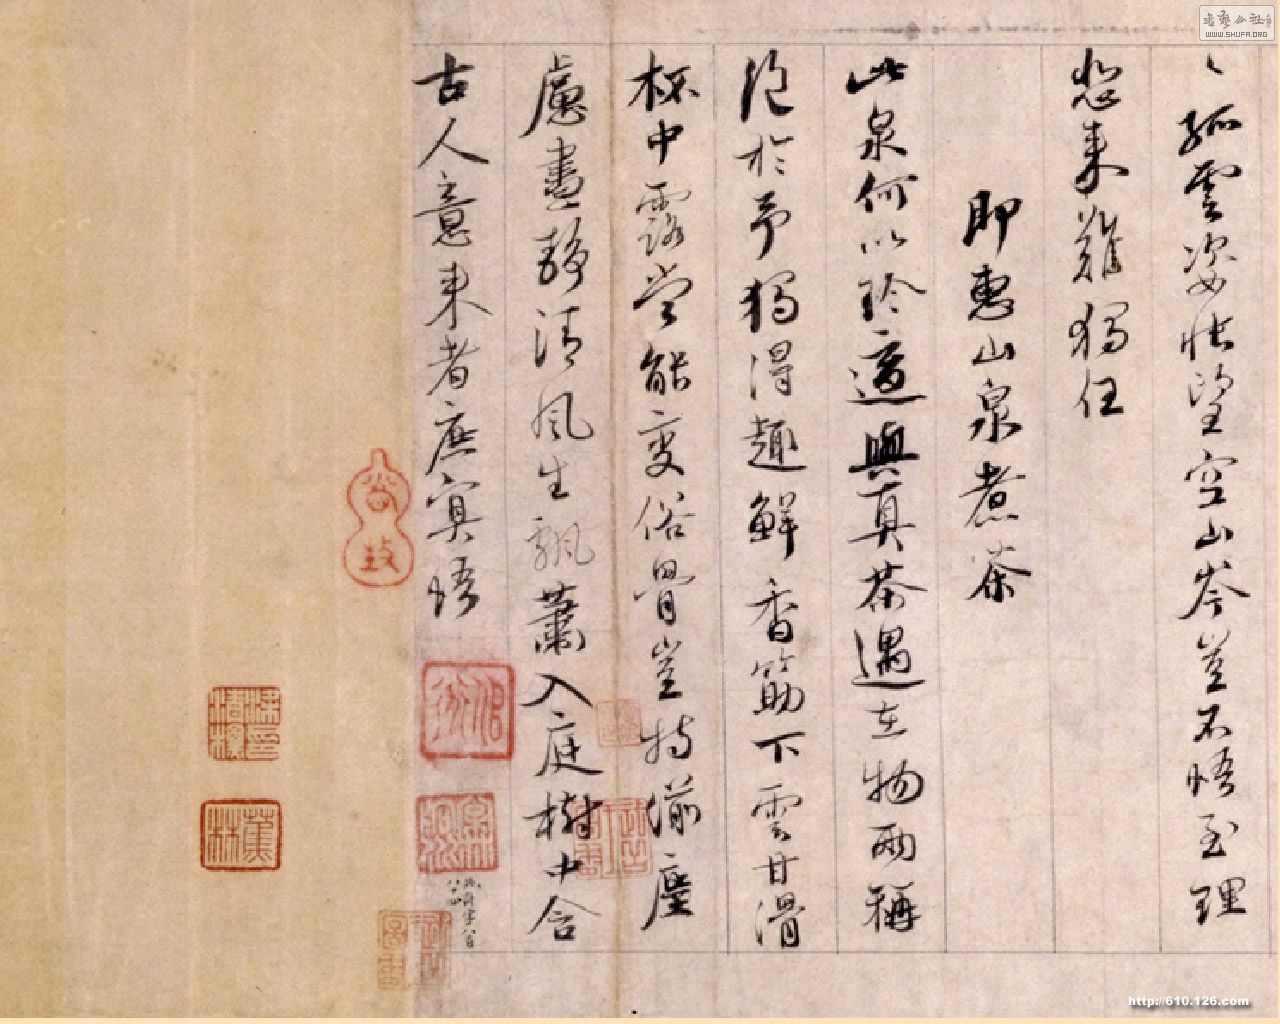 書藝公社
WWW.SHUFA.ORG
〻孤雲姿悵望空山岑豈不悟至理
悲來難獨任
即惠山泉煮茶
此泉何以珍適與真茶遇在物兩稱
絕於予獨得趣鮮香筯下雲甘滑
杯中露當能變俗骨豈特湔塵
慮晝靜清風生飄蕭入庭樹中含
古人意來者庶冥悟
蕉林
http://610.126.com